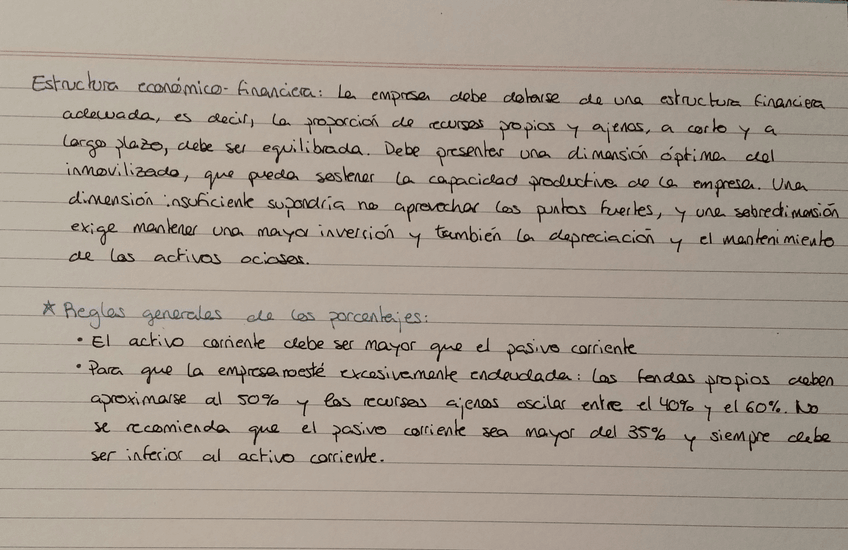 Estructura económico-financiera: La empresa debe dotarse de una estructura financiera
adecuada, es decir, la proporción de recursos propios y ajenos, a corto y a
largo plazo, debe ser equilibrada. Debe presentar una dimensión óptima del
inmovilizado, que pueda sostener la capacidad productiva de la empresa. Una
dimensión insuficiente supondría no aprovechar los puntos fuertes, y una sobredimensión
exige mantener una mayor inversión y también la depreciación y el mantenimiento
de los activos ociosos.
* Reglas generales de los porcentajes:
• El activo corriente debe ser mayor que el pasivo corriente
• Para que la empresa no esté excesivamente endeudada: los fondos propios deben
aproximarse al 50% y los recursos ajenos oscilar entre el 40% y el 60%. No
se recomienda que el pasivo corriente sea mayor del 35% y siempre debe
ser inferior al activo corriente.